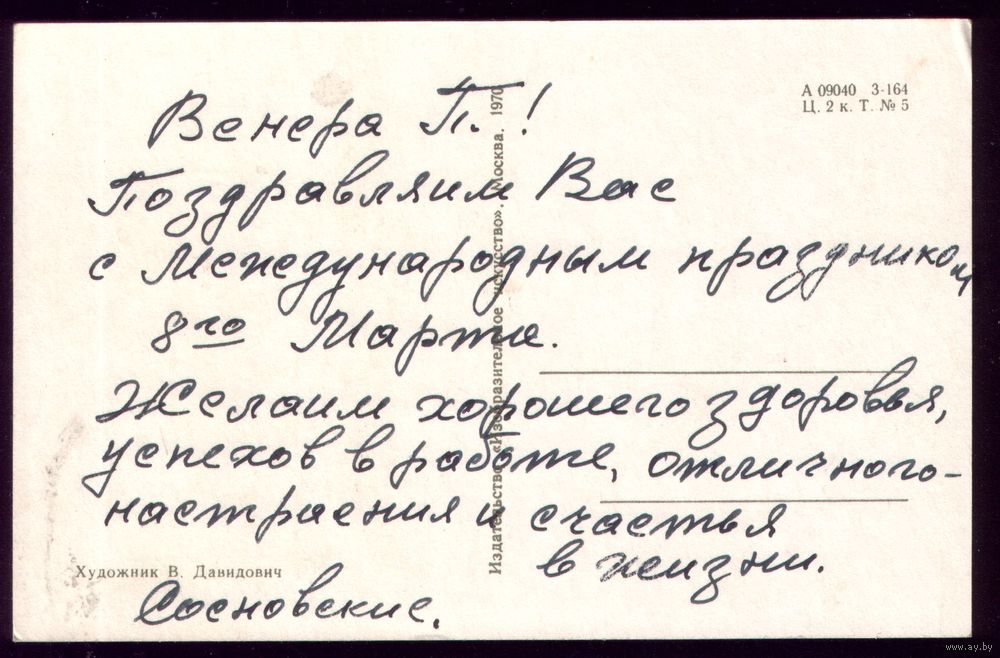 А 09040 3-164
Ц. 2 к. Т. № 5
Венера П.!
Поздравляем Вас
с Международным праздником
8го Марта.
Желаем хорошего здоровья,
успехов в работе, отличного-
настраения и счастья
в жизни.
Сосновские.
Издательство «Изобразительное искусство». Москва. 1970
Художник В. Давидович
www.ay.by